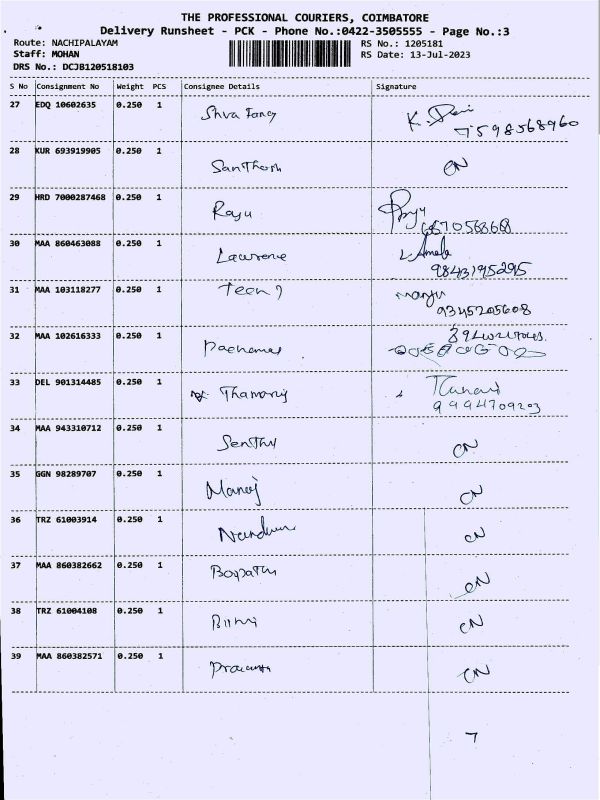 THE PROFESSIONAL COURIERS, COIMBATORE
Delivery Runsheet - PCK - Phone No.:0422-3505555 - Page No.:3
Route: NACHIPALAYAM RS No.: 1205181
Staff: MOHAN RS Date: 13-Jul-2023
DRS No.: DCJB120518103
S No Consignment No Weight PCS Consignee Details Signature
27 EDQ 10602635 0.250 1
7598568960
28 KUR 693919905 0.250 1 Santhosh CN
29 HRD 7000287468 0.250 1 Raju
30 MAA 860463088 0.250 1 Lawrence
31 MAA 103118277 0.250 1 manju
9345205608
32 MAA 102616333 0.250 1
33 DEL 901314485 0.250 1
9994709203
34 MAA 943310712 0.250 1 CN
35 GGN 98289707 0.250 1 Manoj CN
36 TRZ 61003914 0.250 1 CN
37 MAA 860382662 0.250 1 CN
38 TRZ 61004108 0.250 1 CN
39 MAA 860382571 0.250 1 CN
7